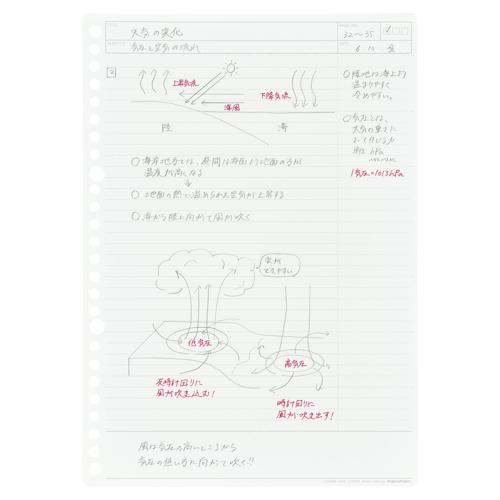 TITLE
天気の変化
PAGE NO.
32〜35
SUBTITLE
気圧と空気の流れ
DATE
6 12 金
2
上昇気流
海風
下降気流
陸
海
○陸地は海より
温まりやすく
冷めやすい。
○気圧とは、
大気の重さに
よって生じる力
単位 hPa
ヘクトパスカル
1気圧=1013hPa
○海岸地方では、昼間は海面より地面の方が
温度が高くなる
○地面の熱で温められた空気が上昇する
○海から陸に向かって風が吹く
雲が
できやすい
低気圧
高気圧
反時計回りに
風が吹き込む!
時計回りに
風が吹き出す!
風は気圧の高いところから
気圧の低い方に向かって吹く!!